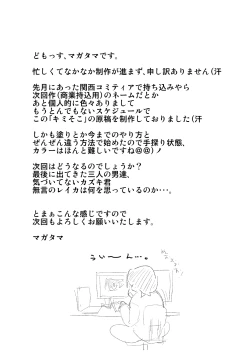 どもっす、マガタマです。
忙しくてなかなか制作が進まず、申し訳ありません(汗
先月にあった関西コミティアで持ち込みやら
次回作(商業持込用)のネームだとか
あと個人的に色々ありまして
もうとんでもないスケジュールで
この「キミそこ」の原稿を制作しておりました(汗
しかも塗りとか今までのやり方と
ぜんぜん違う方法で始めたので手探り状態、
カラーはほんと難しいですね@@)ノ
次回はどうなるのでしょうか?
最後に出てきた三人の男達、
気づいてないカズキ君
無言のレイカは何を思っているのか・・・。
とまぁこんな感じですので
次回もよろしくお願いいたします。
マガタマ
うぃ～ん…。